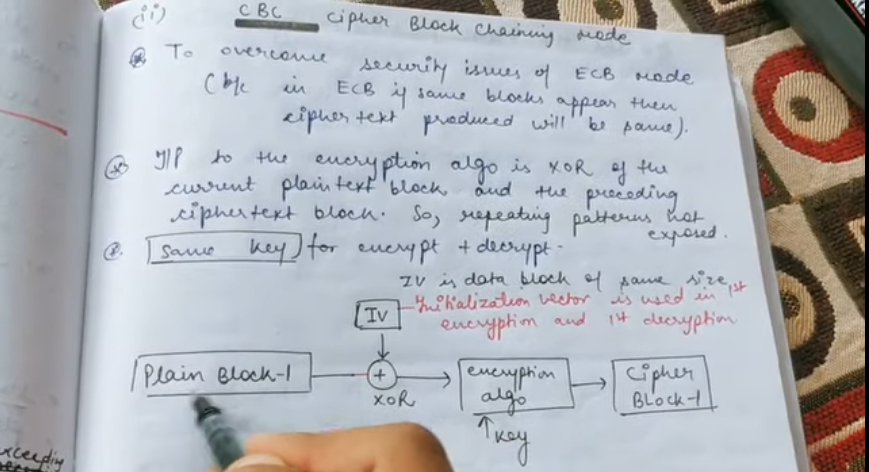 (ii) CBC Cipher Block Chaining Mode
To overcome security issues of ECB mode
(b/c in ECB if same blocks appear then
cipher text produced will be same).
I/P to the encryption algo is XOR of the
current plain text block and the preceding
cipher text block. So, repeating patterns not
exposed.
Same Key for encrypt + decrypt -
IV is data block of same size
IV - Initialization vector is used in 1st
encryption and 1st decryption
Plain Block-1
+
XOR
encryption
algo
Key
Cipher
Block-1
exceeding